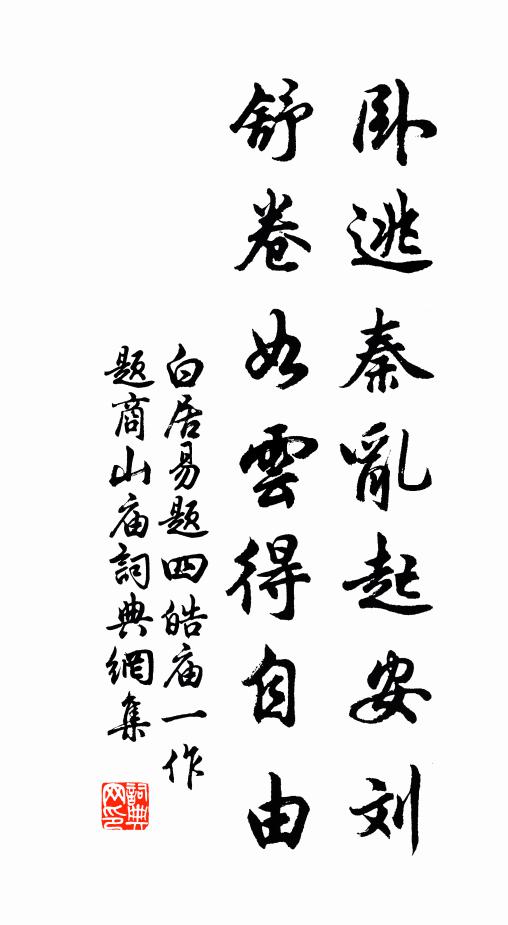 卧逃秦亂起安刘
舒卷如雲得自由
白居易题四皓庙一作
题商山庙詞典網集
詞典网印